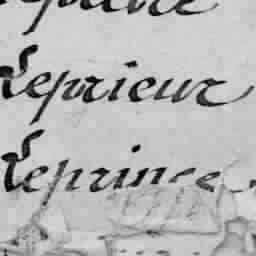 Leprieur
Leprince